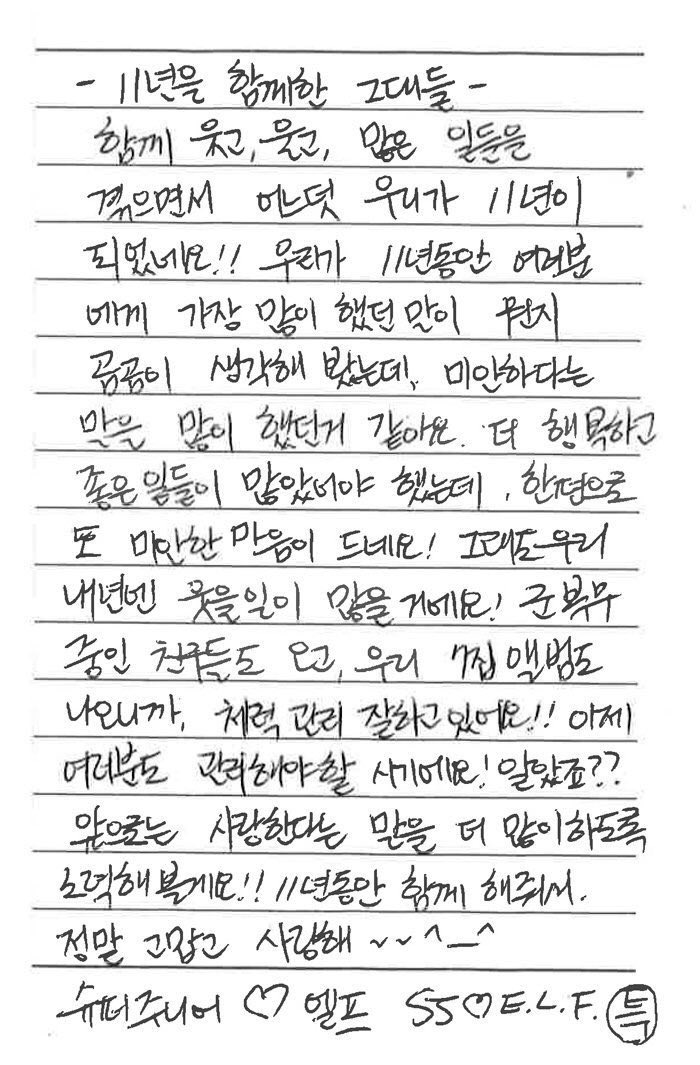 - 11년을 함께한 그대들 -
함께 웃고, 울고, 많은 일들을
겪으면서 어느덧 우리가 11년이
되었네요!! 우리가 11년동안 여러분
에게 가장 많이 했던 말이 뭔지
곰곰이 생각해 봤는데, 미안하다는
말을 많이 했던거 같아요. 더 행복하고
좋은일들이 많았어야 했는데, 한편으로
또 미안한 마음이 드네요! 그래도 우리
내년엔 웃을일이 많을거에요! 군복무
중인 친구들도 오고, 우리 7집 앨범도
나오니까, 체력 관리 잘하고있어요!! 이제
여러분도 관리해야할 시기에요! 알았죠??
앞으로는 사랑한다는 말을 더 많이하도록
노력해볼게요!! 11년동안 함께 해줘서.
정말 고맙고 사랑해 ~~^_^
슈퍼주니어 ♡ 엘프 SJ♡E.L.F. 특